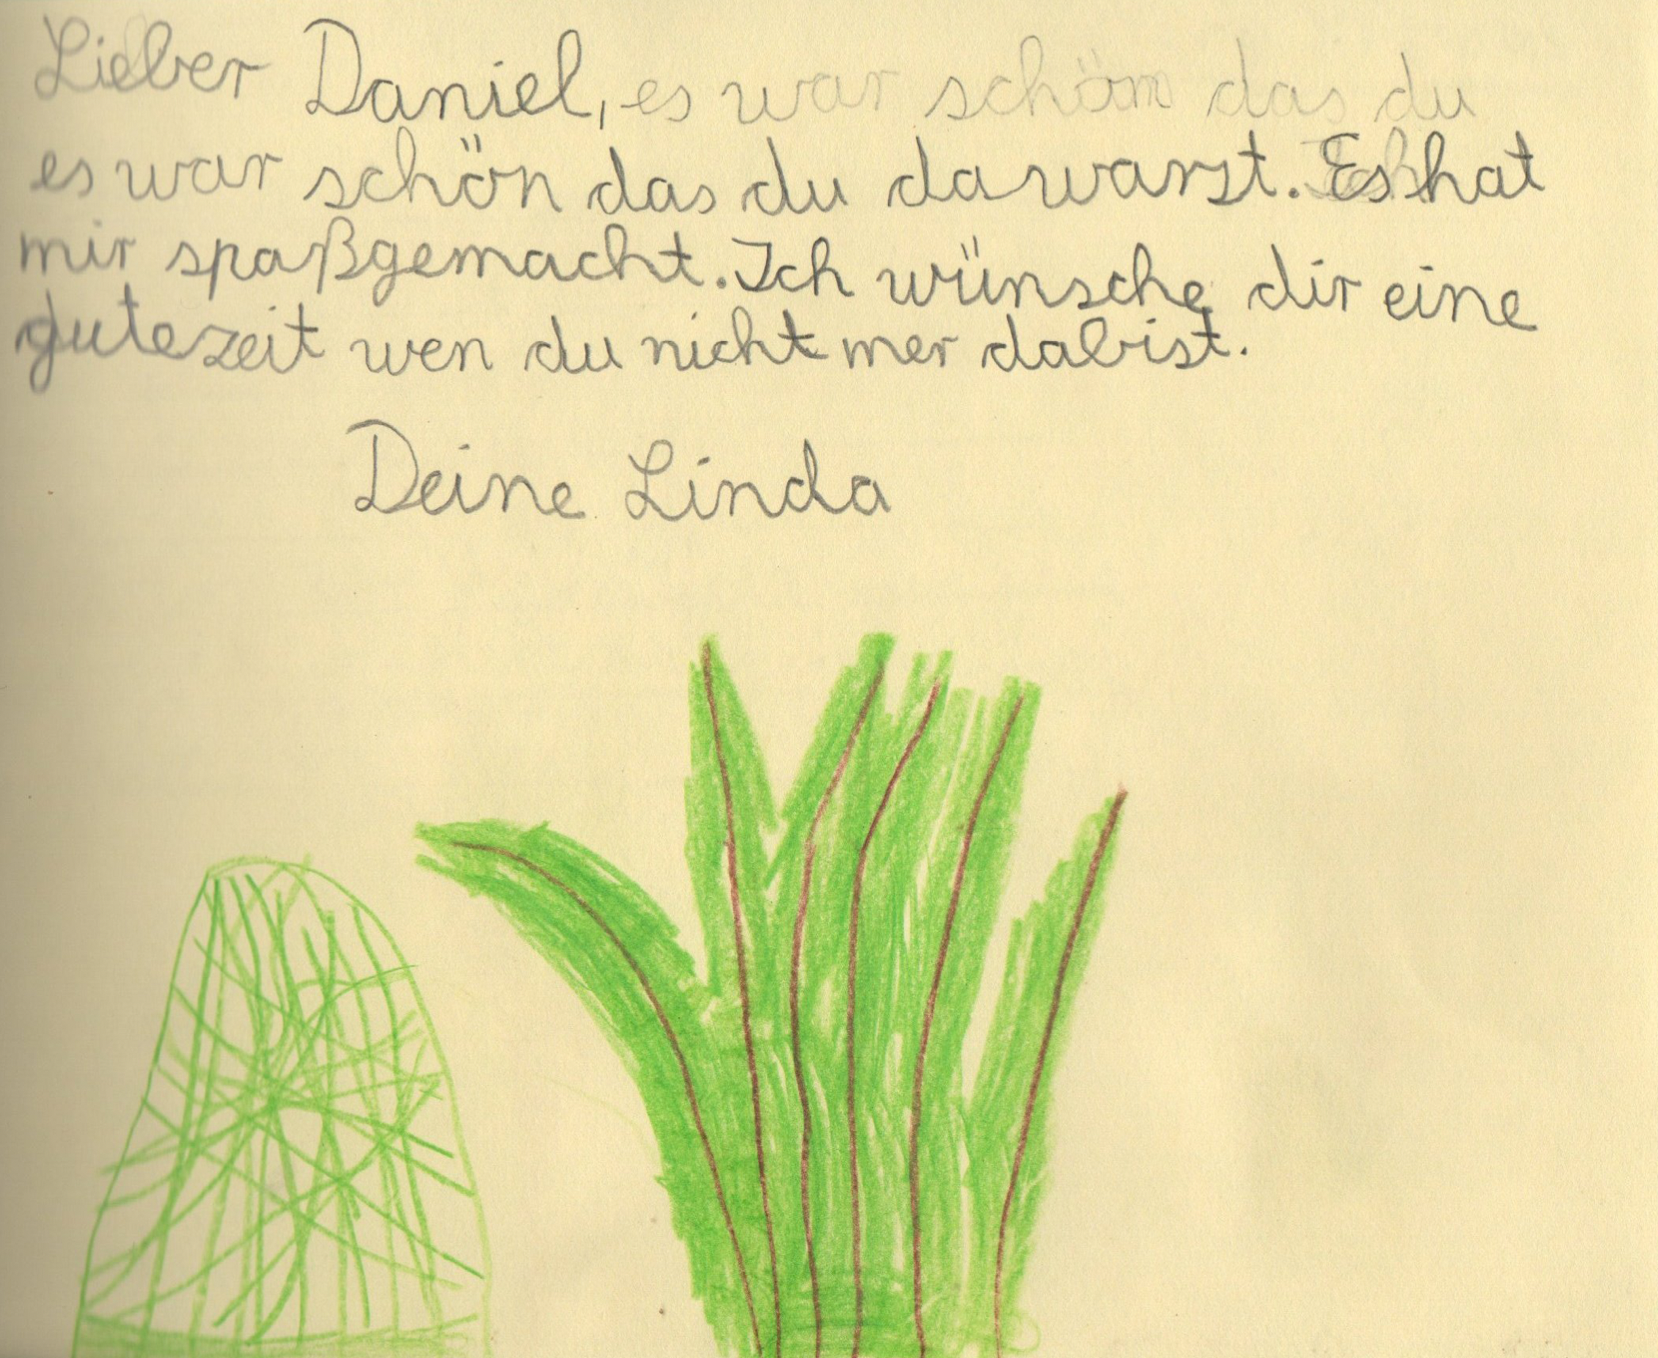 Lieber Daniel, es war schön das du
es war schön das du da warst. Es hat
mir spaßgemacht. Ich wünsche dir eine
gutezeit wen du nicht mer dabist.
Deine Linda